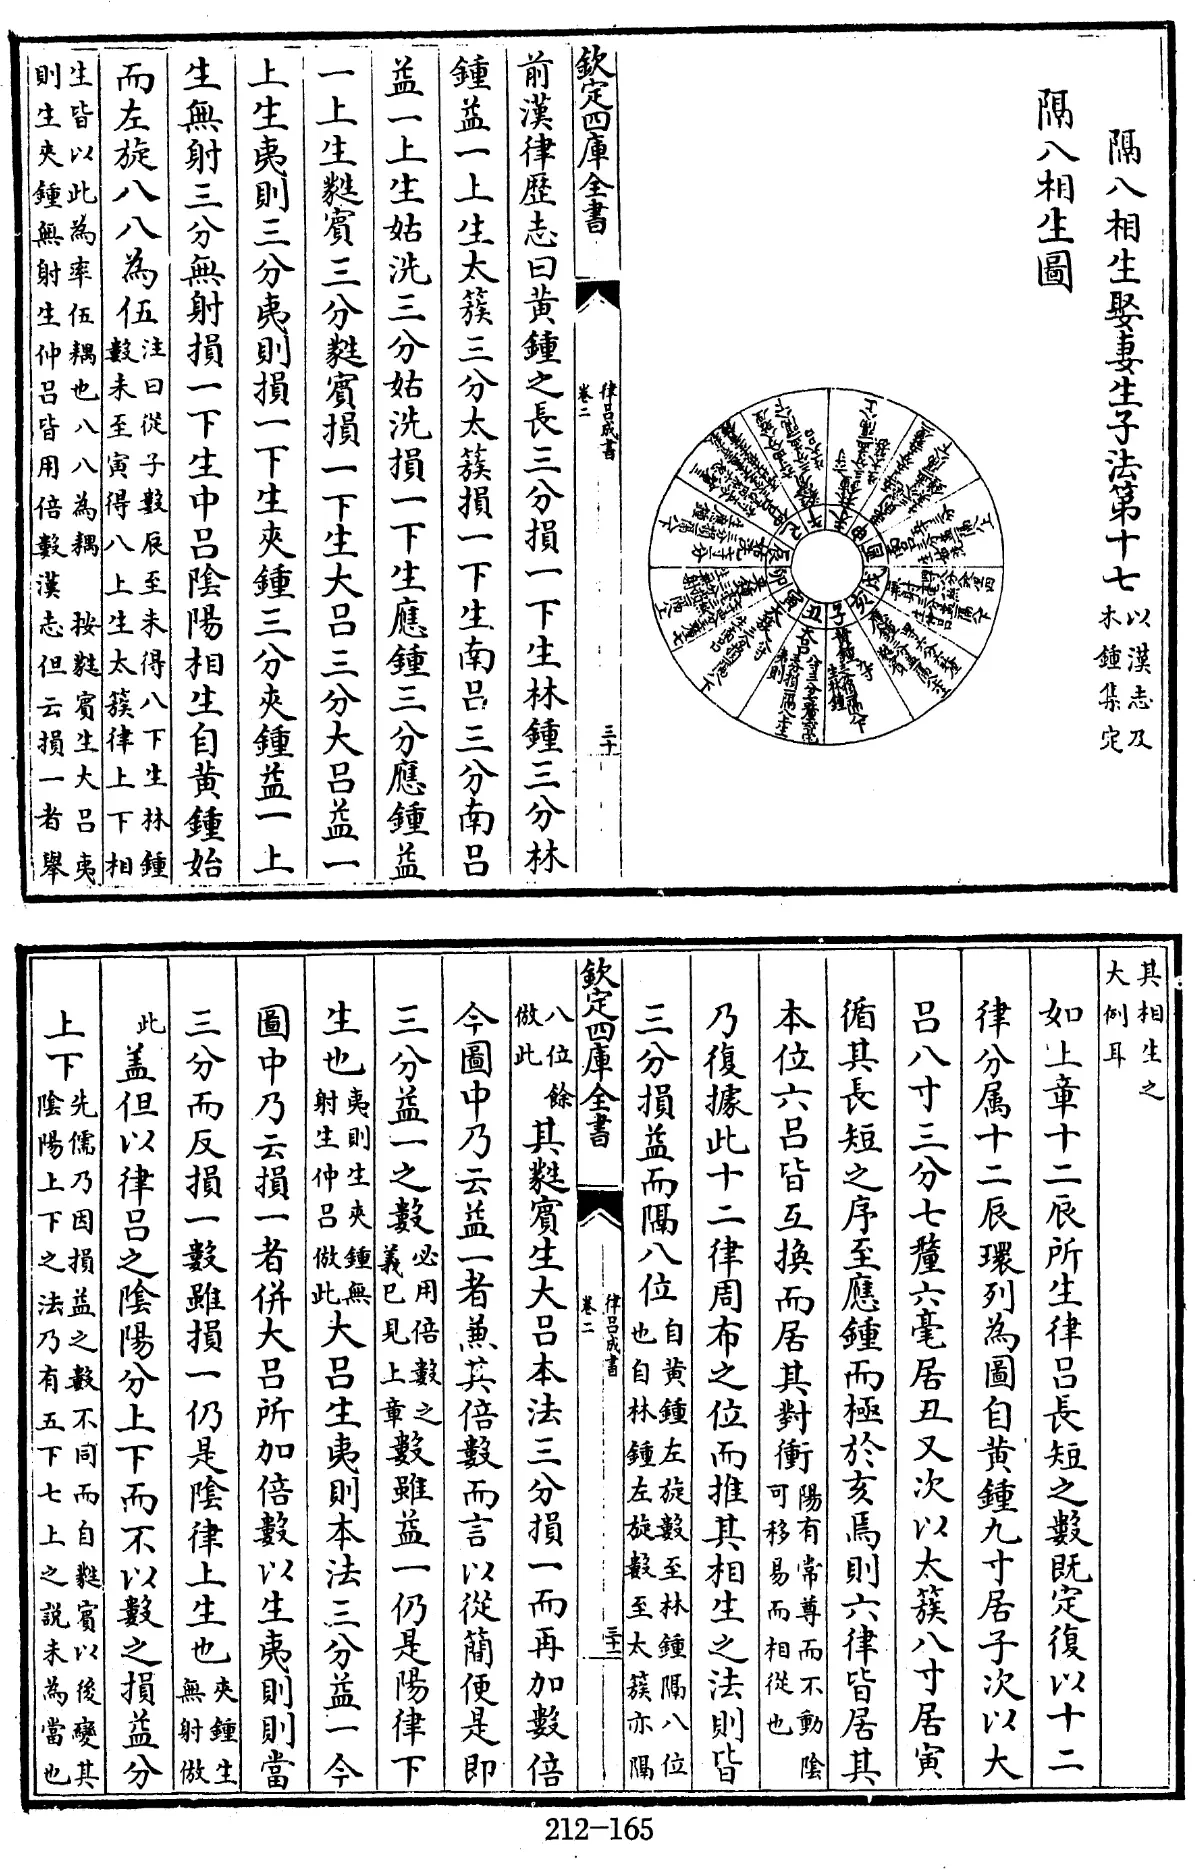 隔八相生娶妻生子法第十七以漢志及
木鍾集定
隔八相生圖
欽定四庫全書
律呂成書
卷二
三十
前漢律歷志曰黄鍾之長三分損一下生林鍾三分林
鍾益一上生太簇三分太簇損一下生南呂三分南呂
益一上生姑洗三分姑洗損一下生應鍾三分應鍾益
一上生蕤賓三分蕤賓損一下生大呂三分大呂益一
上生夷則三分夷則損一下生夾鍾三分夾鍾益一上
生無射三分無射損一下生中呂陰陽相生自黄鍾始
而左旋八八為伍注曰從子數辰至未得八下生林鍾
數未至寅得八上生太簇律上下相
生皆以此為率伍耦也八八為耦　按蕤賓生大呂夷
則生夾鍾無射生仲呂皆用倍數漢志但云損一者舉
其相生之
大例耳
如上章十二辰所生律呂長短之數既定復以十二
律分属十二辰環列為圖自黄鍾九寸居子次以大
呂八寸三分七釐六毫居丑又次以太簇八寸居寅
循其長短之序至應鍾而極於亥焉則六律皆居其
本位六呂皆互換而居其對衝陽有常尊而不動陰
可移易而相從也
乃復據此十二律周布之位而推其相生之法則皆
三分損益而隔八位自黄鍾左旋數至林鍾隔八位
也自林鍾左旋數至太簇亦隔
八位餘
倣此
其蕤賓生大呂本法三分損一而再加數倍
今圖中乃云益一者兼其倍數而言以從簡便是即
三分益一之數必用倍數之
義已見上章
數雖益一仍是陽律下
生也夷則生夾鍾無
射生仲呂倣此
大呂生夷則本法三分益一今
圖中乃云損一者併大呂所加倍數以生夷則則當
三分而反損一數雖損一仍是陰律上生也夾鍾生
無射倣
此
盖但以律呂之陰陽分上下而不以數之損益分
上下先儒乃因損益之數不同而自蕤賓以後變其
陰陽上下之法乃有五下七上之説未為當也
欽定四庫全書
律呂成書
卷二
三十一
212-165